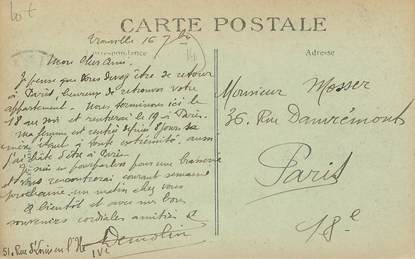 CARTE POSTALE
Correspondance
Adresse
Trouville 16 7bre
Mon cher Ami
Je pense que vous devez être de retour
à Paris, heureux de retrouver votre
appartement. Nous terminons ici le
18 au soir et rentrerai le 19 à Paris.
Ma femme est rentrée depuis 8 jours sa
mère étant à toute extrémité, aussi
j'ai hâte d'être à Paris.
Je suis en pourparlers pour une brasserie
et vous rencontrerai courant semaine
prochaine, un matin chez vous
à bientôt et avec mes bons
souvenirs cordiales amitiés
Demolin
51. Rue St Louis en l'Ile
IVe
Monsieur Mosser
36, Rue Damrémont
Paris
18e